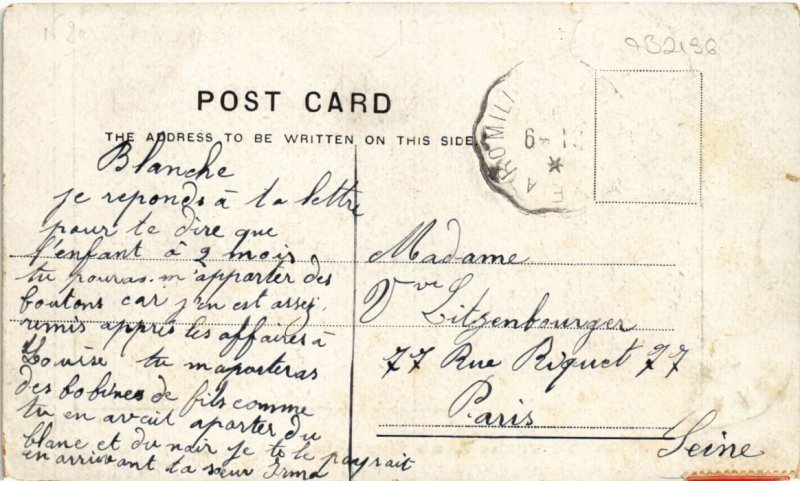 N 20
932196
POST CARD
THE ADDRESS TO BE WRITTEN ON THIS SIDE
ROMILI
Blanche
je reponds à ta lettre
pour te dire que
l'enfant à 2 mois
tu pouras m'apporter des
boutons car j'en est assez
remis appres les affaires à
Louise tu maporteras
des bobines de fils comme
tu en avait aporter du
blanc et du noir je te le payrait
en arrivant ta sœur Irma
Madame
Vve Litzenbourger
77 Rue Riquet 77
Paris
Seine